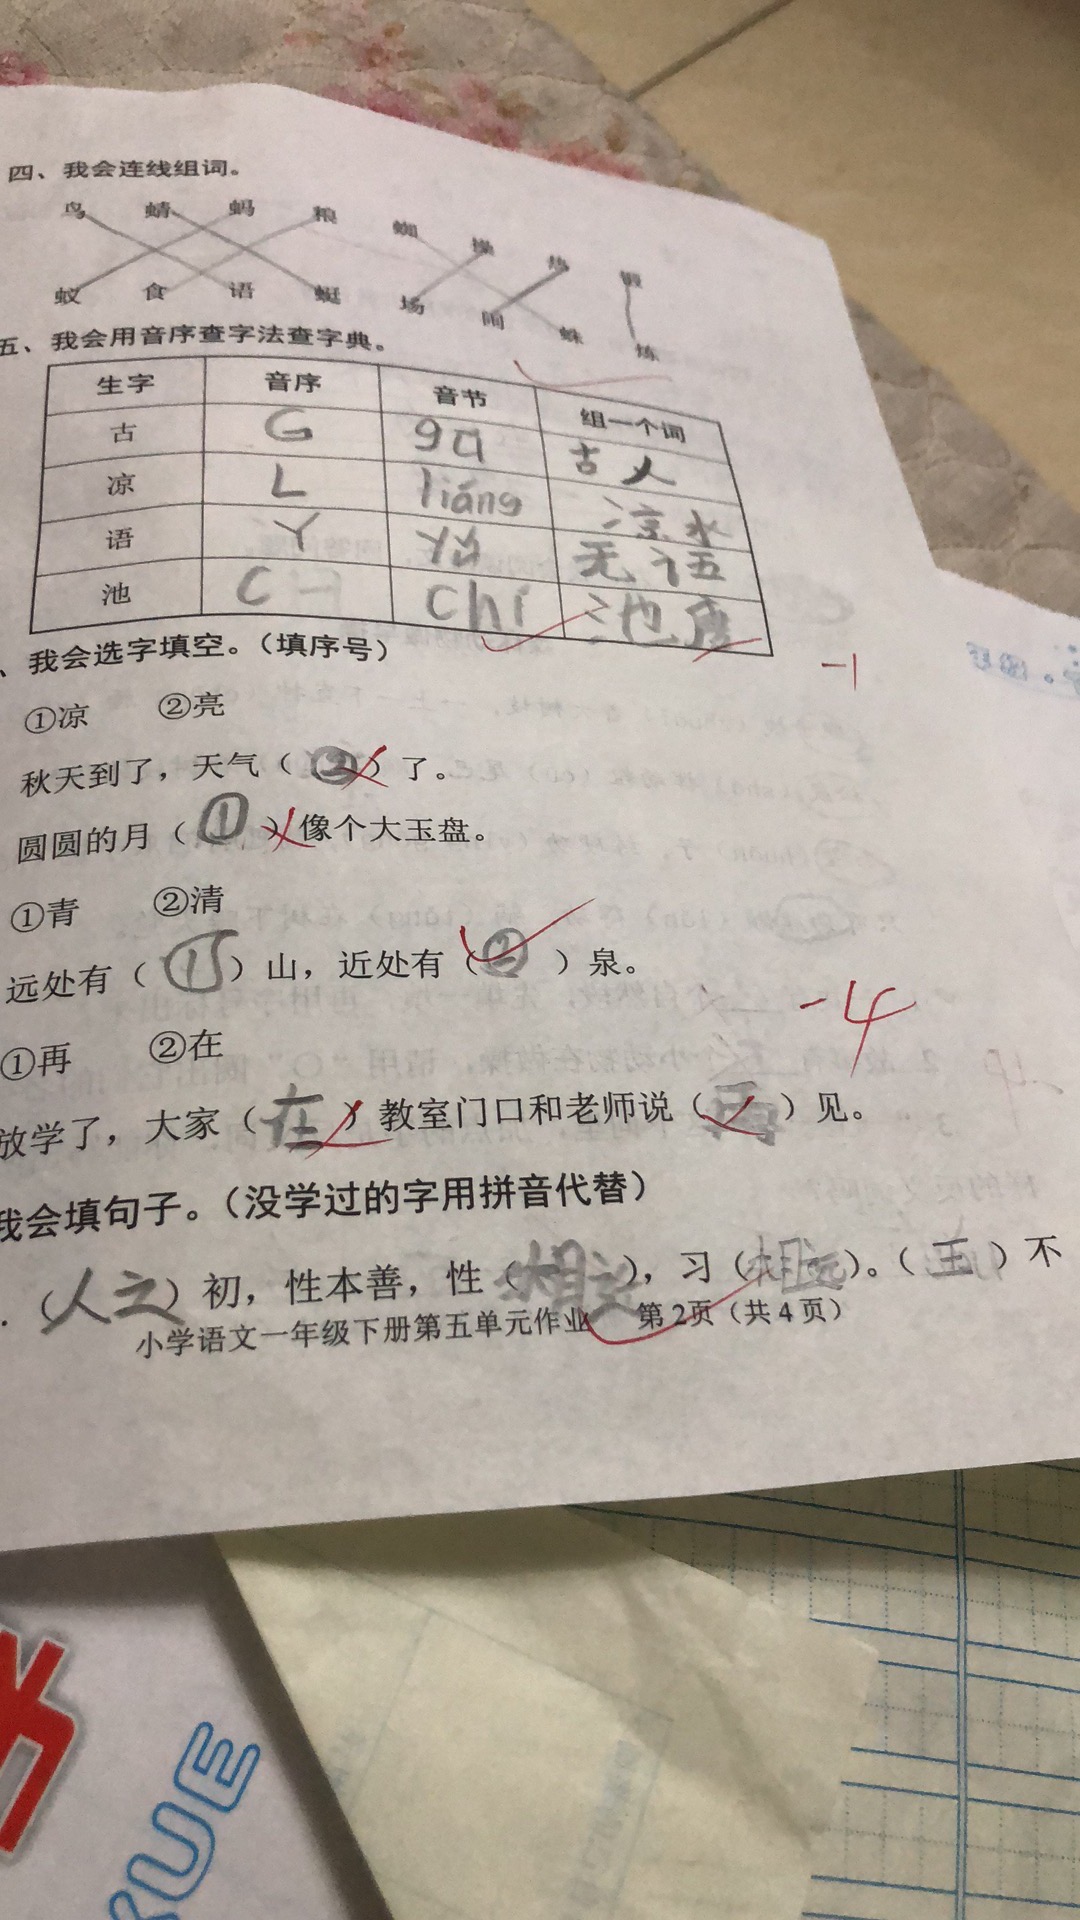 四、我会连线组词。
鸟 蜻 蚂 粮 蜘 操 热 锻
蚁 食 语 蜓 场 闹 蛛 炼
五、我会用音序查字法查字典。
生字 音序 音节 组一个词
古 G gu 古人
凉 L liáng 凉水
语 Y yǔ 无语
池 C chí 池
-1
、我会选字填空。（填序号）
①凉 ②亮
秋天到了，天气（②）了。
圆圆的月（①）像个大玉盘。
①青 ②清
远处有（①）山，近处有（②）泉。
-4
①再 ②在
放学了，大家（在）教室门口和老师说（再）见。
我会填句子。（没学过的字用拼音代替）
（人之）初，性本善，性（相近），习（相远）。（玉）不
小学语文一年级下册第五单元作业 第2页（共4页）
XUE